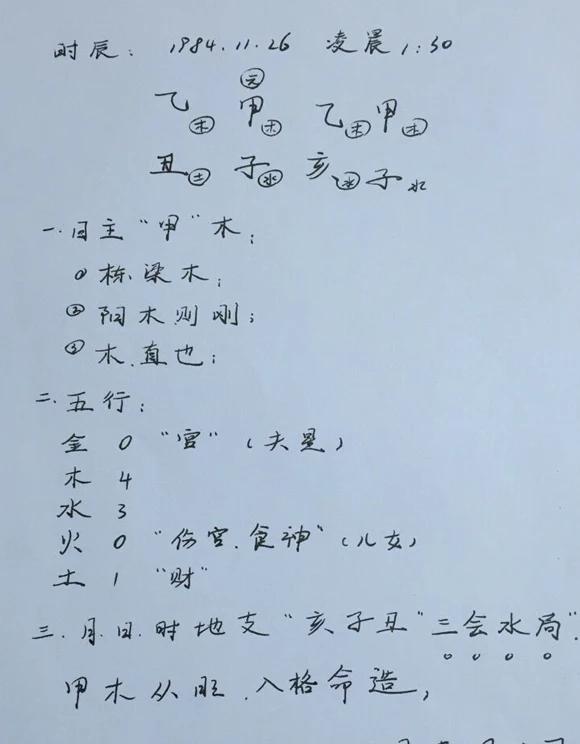 时辰: 1984.11.26 凌晨1:30
元
乙木 甲木 乙木 甲木
丑土 子水 亥水 子水
一.日主"甲"木;
①栋梁木;
②阳木则刚;
③木.直也;
二.五行:
金 0 "官"(夫星)
木 4
水 3
火 0 "伤官.食神"(儿女)
土 1 "财"
三.月.日.时地支"亥子丑"三会水局".
甲木从旺.入格命造,